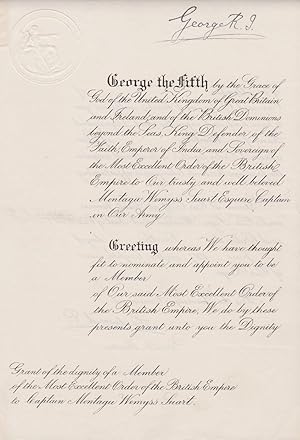 George R. I.
George the Fifth by the Grace of
God of the United Kingdom of Great Britain
and Ireland and of the British Dominions
beyond the Seas, King Defender of the
Faith, Emperor of India and Sovereign of
the Most Excellent Order of the British
Empire to Our trusty and well beloved
Montagu Wemyss Suart Esquire Captain
in Our Army
Greeting whereas We have thought
fit to nominate and appoint you to be
a Member
of Our said Most Excellent Order of
the British Empire We do by these
presents grant unto you the Dignity
Grant of the dignity of a Member
of the Most Excellent Order of the British Empire
to Captain Montagu Wemyss Suart.